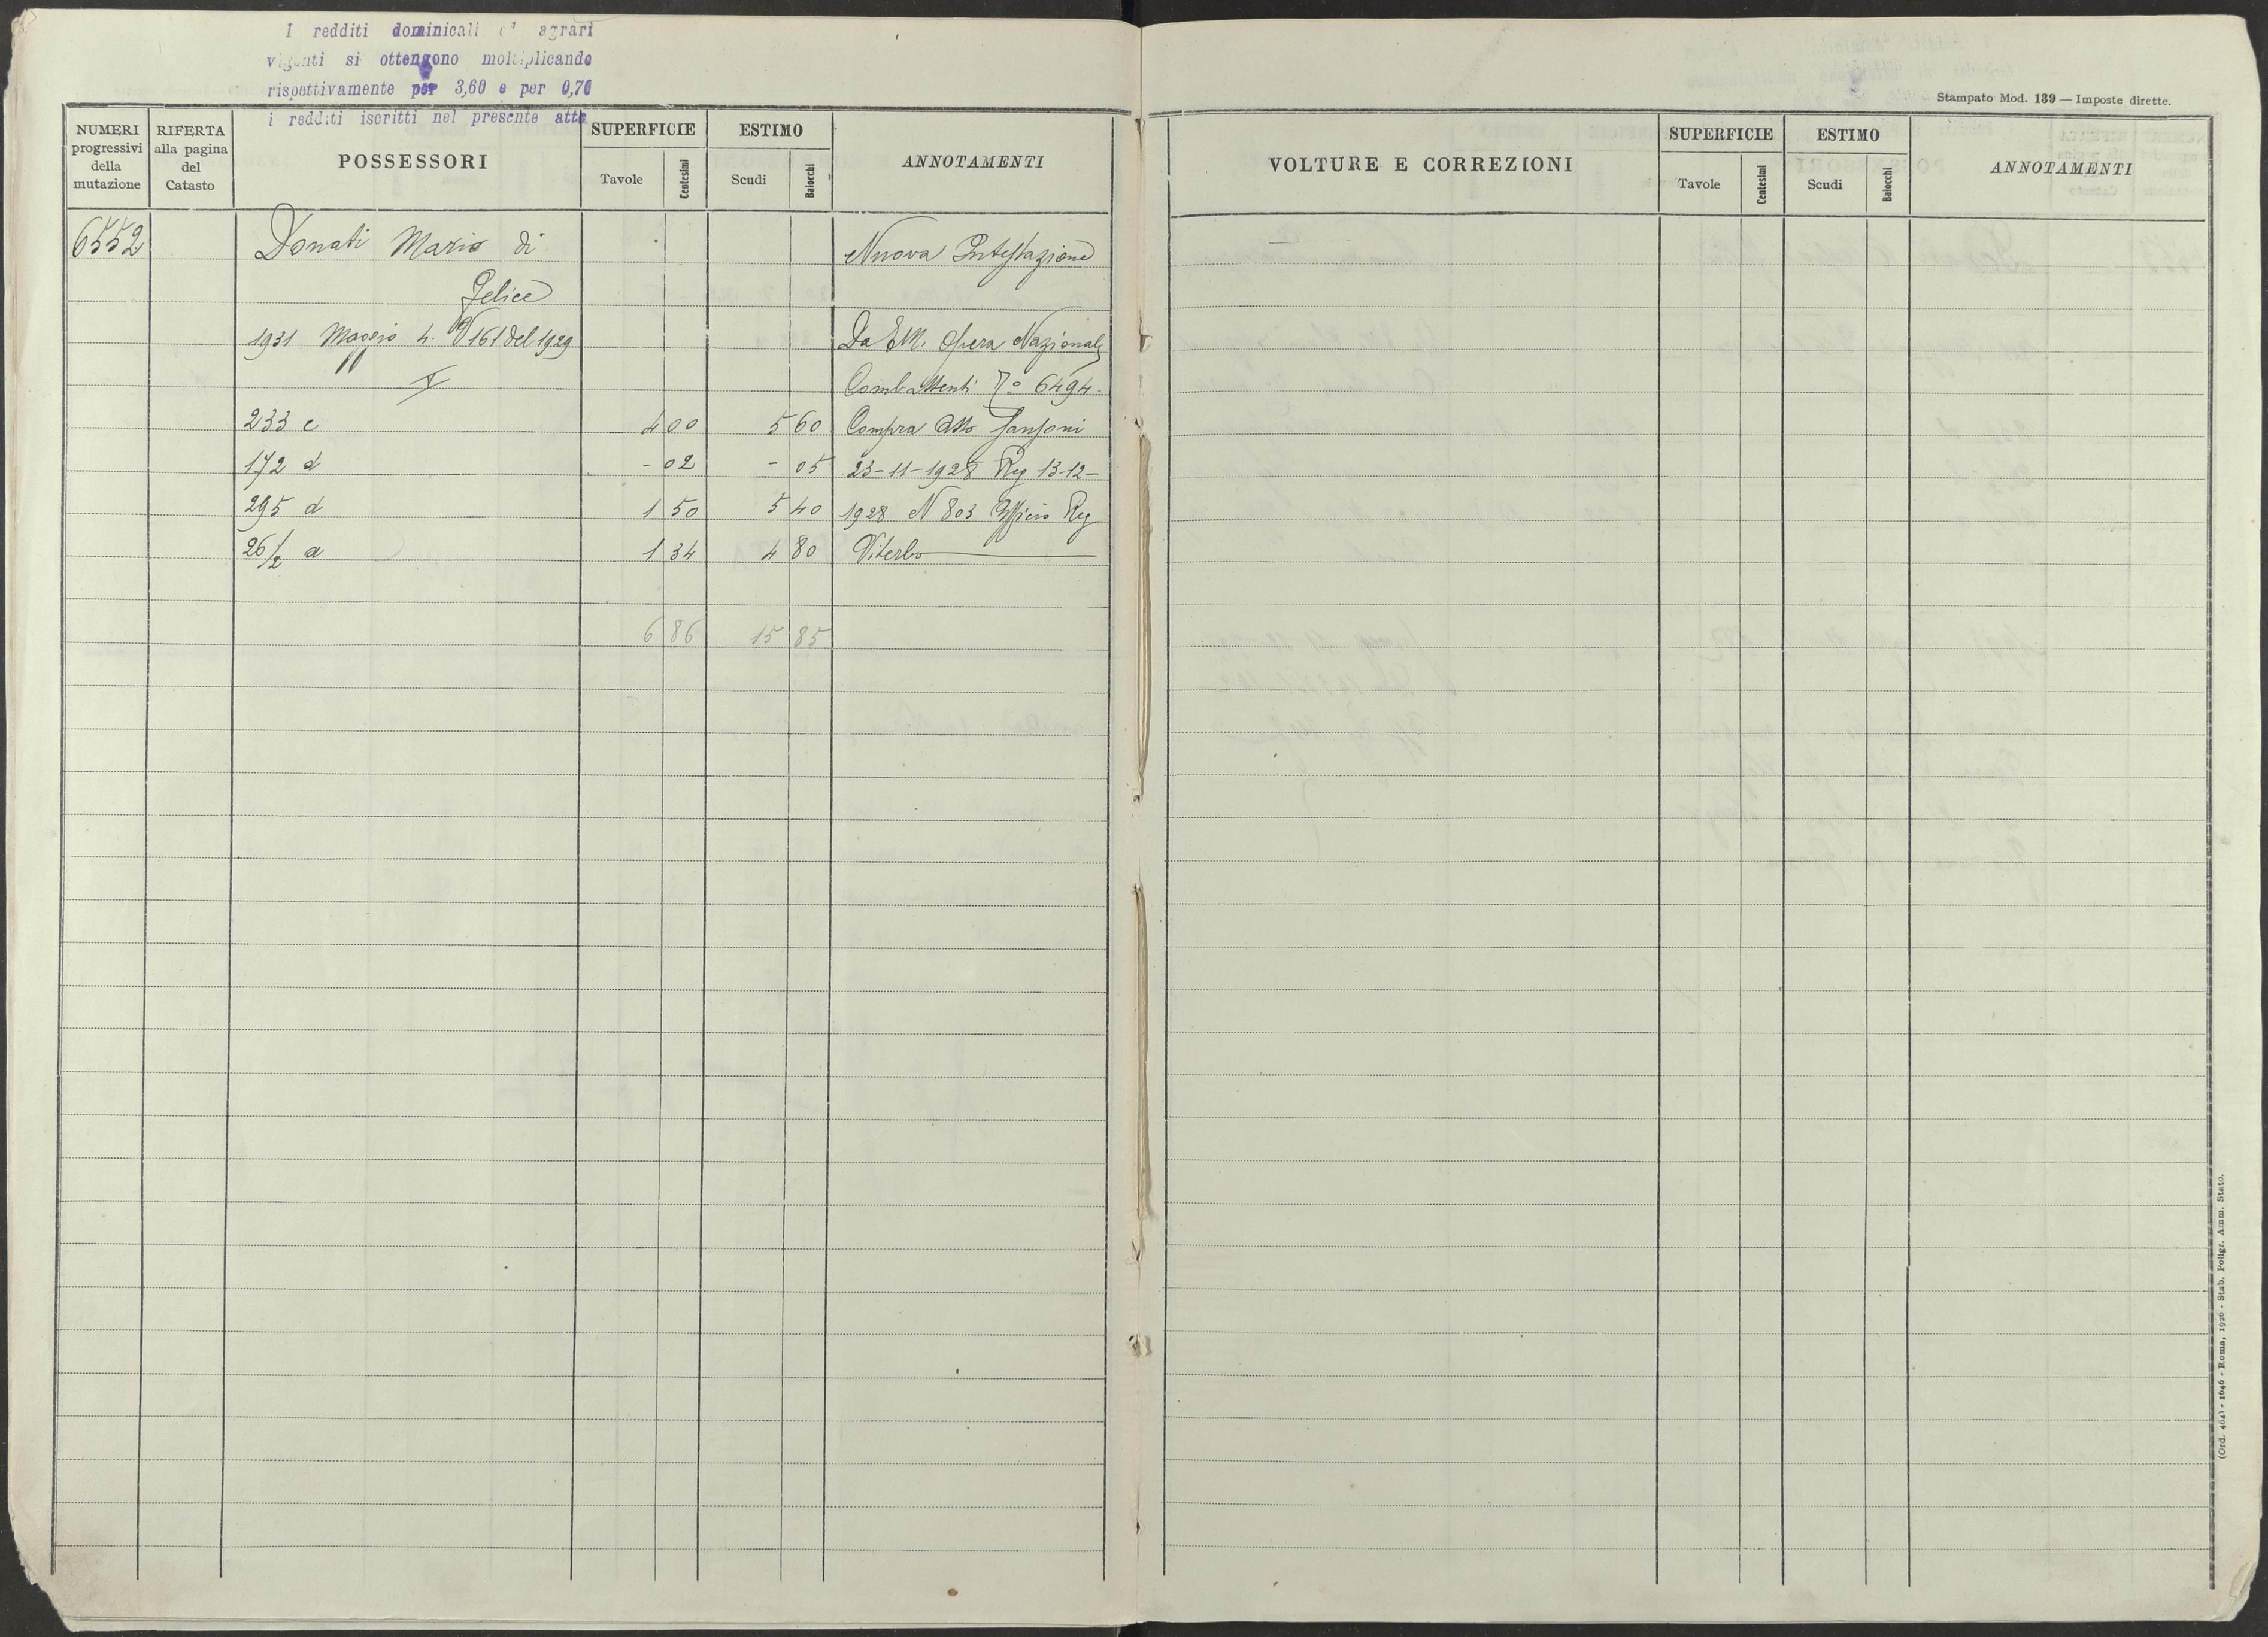 I redditi dominicali ed agrari
vigenti si ottengono moltiplicando
rispettivamente per 3,60 e per 0,70
i redditi iscritti nel presente atto
NUMERI progressivi della mutazione
RIFERTA alla pagina del Catasto
POSSESSORI
SUPERFICIE
Tavole
Centesimi
ESTIMO
Scudi
Baiocchi
ANNOTAMENTI
6552 Donati Mario di Nuova Intestazione
Felice
1931 Maggio 4. V 161 del 1929 Da EM. Opera Nazionale
Combattenti 6494
233 c 4 00 5 60 Compra Atto Sansoni
172 d - 02 - 05 23-11-1928 Reg 13-12-
295 d 1 50 5 40 1928 N 803 Ufficio Reg
26/2 a 1 34 4 80 Viterbo
6 86 15 85
Stampato Mod. 139 — Imposte dirette.
VOLTURE E CORREZIONI
SUPERFICIE
Tavole
Centesimi
ESTIMO
Scudi
Baiocchi
ANNOTAMENTI
(Ord. 464) - 1646 - Roma, 1926 - Stab. Poligr. Amm. Stato.